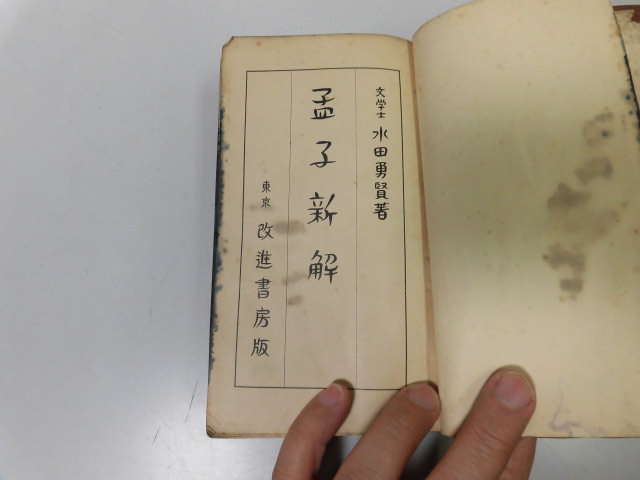 文学士 水田勇賢著
孟子新解
東京 改進書房版